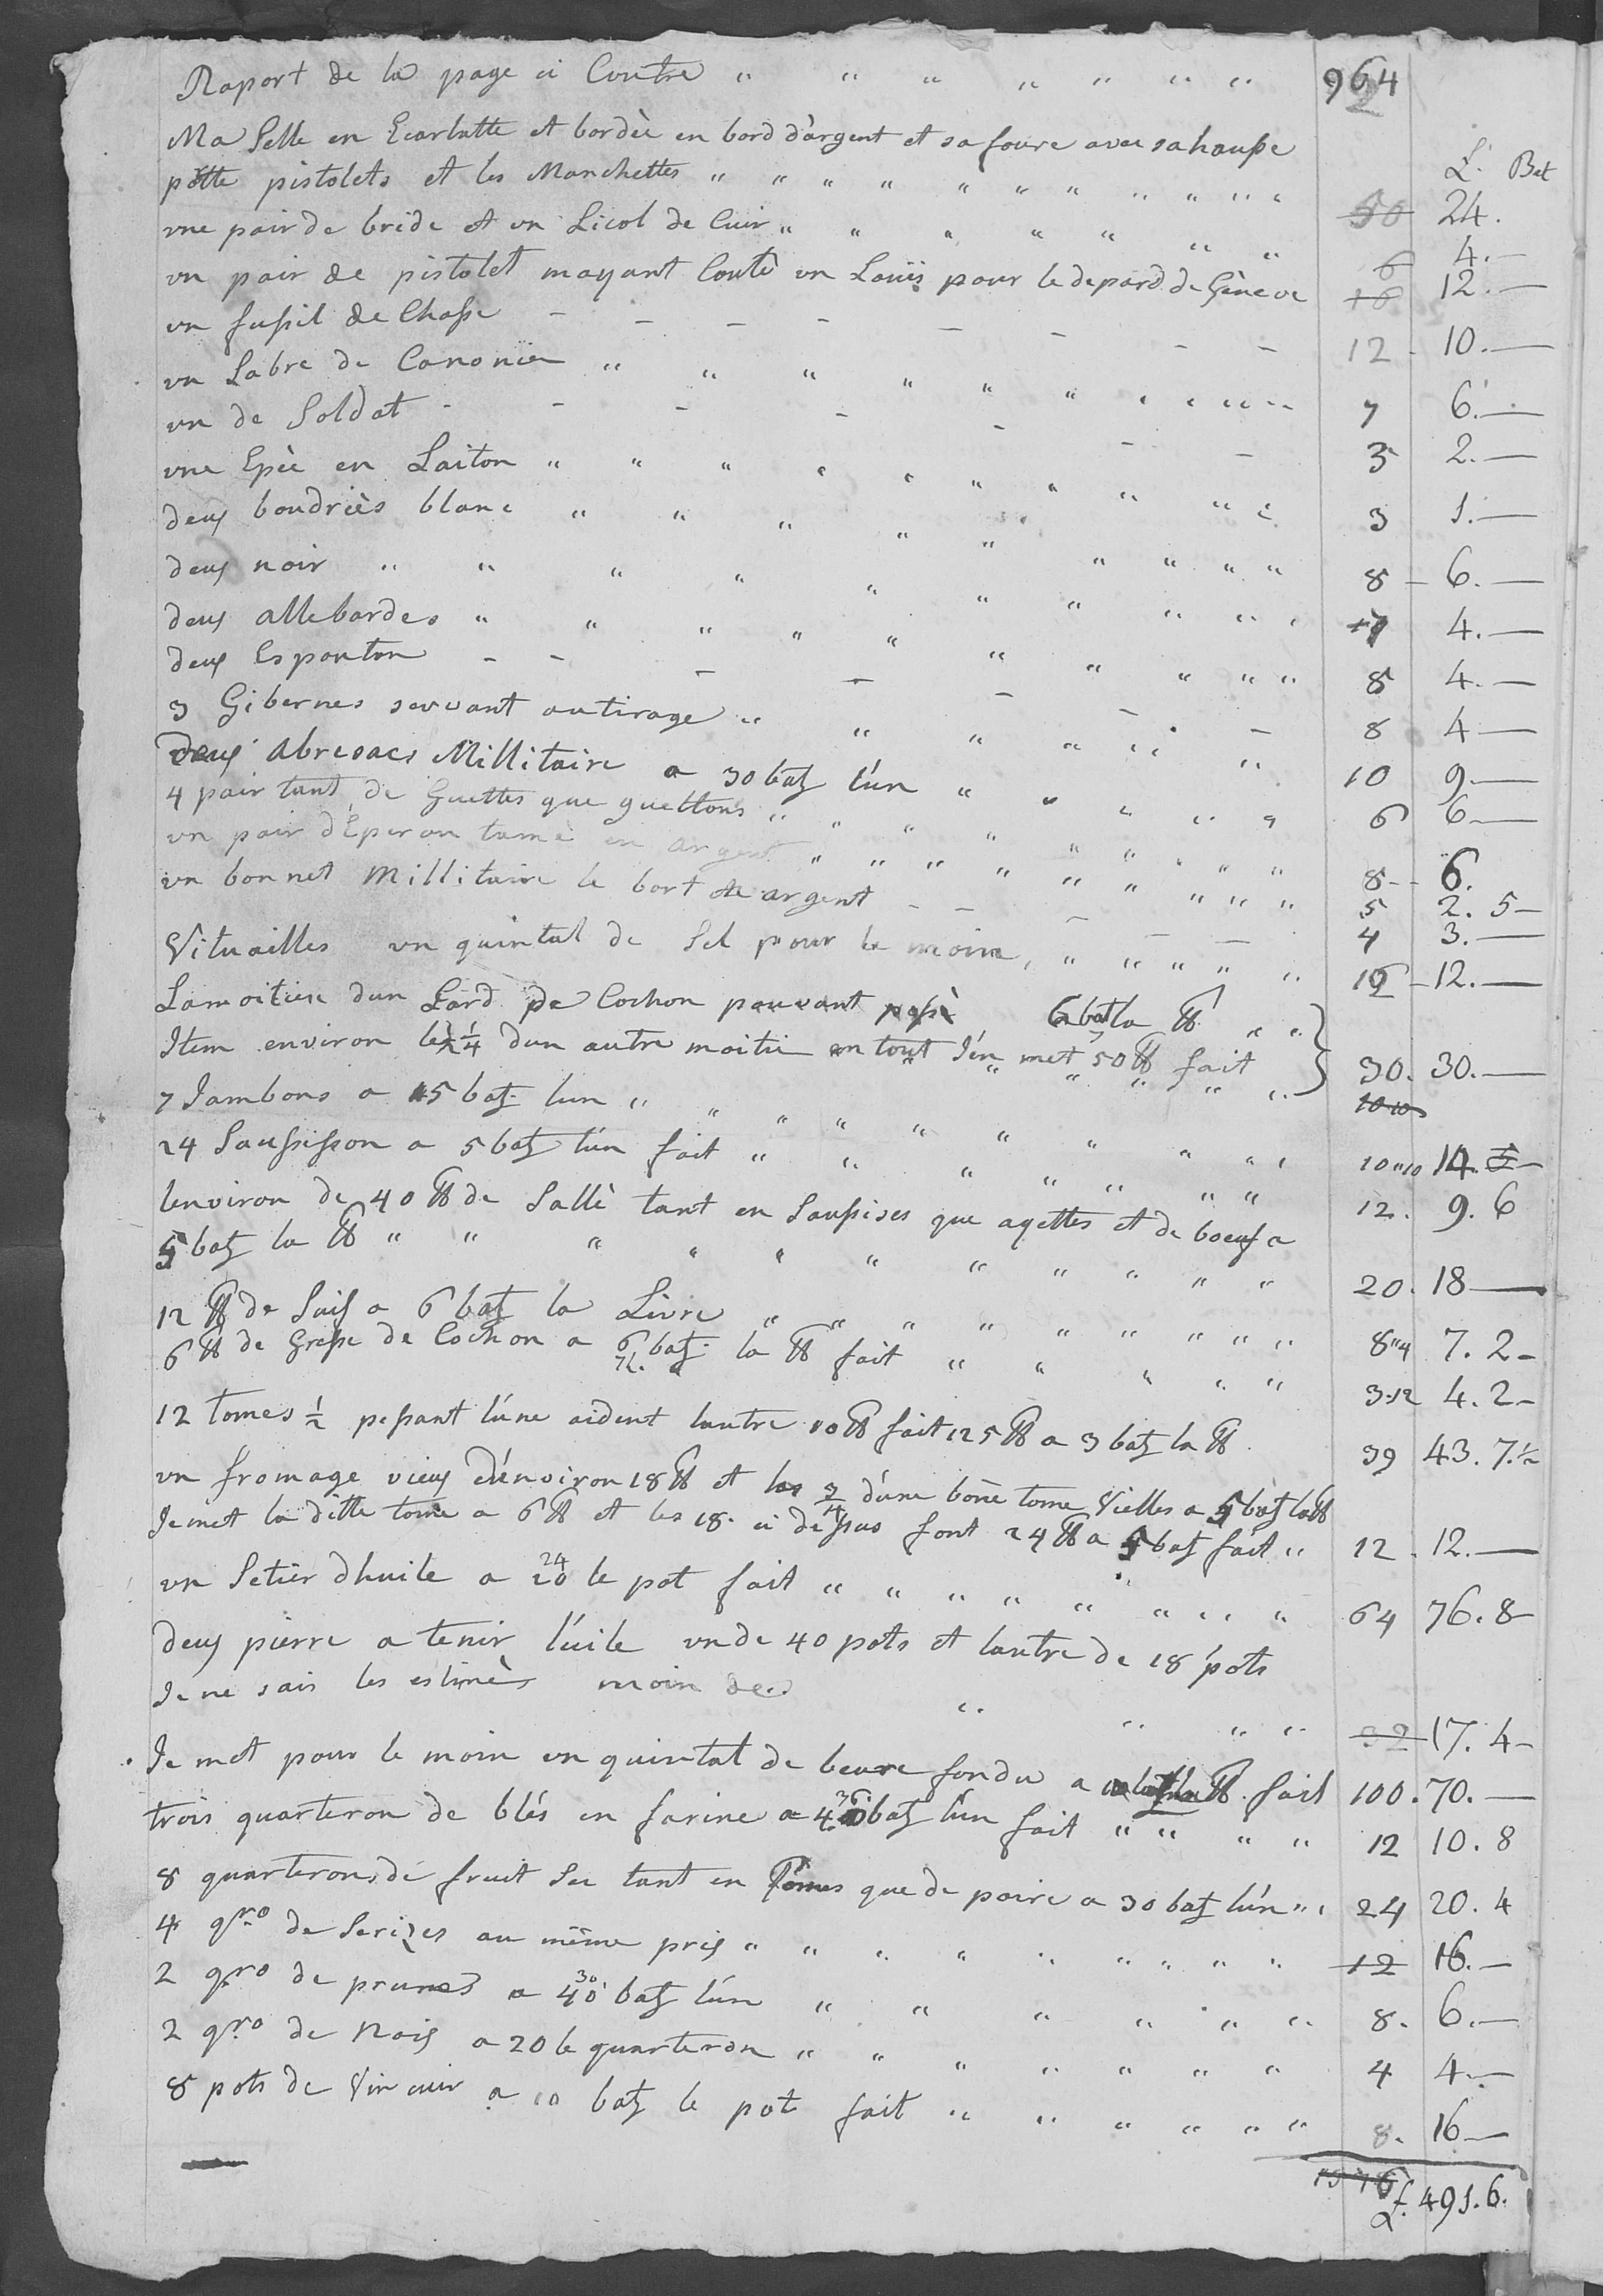 Raport de la page ci Contre " " " " " " " 964
L. Bat
Ma Selle en Ecarlatte et bordèe en bord d'argent et sa foure avec sa housse
potte pistolets et les Manchettes " " " " " " " " " " " 50 24.
une pair de bride et un Licol de Cuir " " " " " " " 6 4.—
un pair de pistolet mayant Coutè un Louis pour le depard de Genève 16 12.—
un fusil de Chasse - - - - - - - - 12 - 10.—
un Sabre de Canonier " " " " " " " " " " 7 6.—
un de Soldat - - - - - - - 3 2.—
une Epèe en Laiton " " " " " " " " " " 3 1.—
deux boudriès blanc " " " " " " " " " 8 - 6.—
deux noir " " " " " " " " " " 7 4.—
deux allebardes " " " " " " " " " " 8 4.—
deux Esponton - - - - - - - 8 4—
3 Gibernes servant au tirage " " " " " " 10 9.—
Deux abresacs Millitaire a 30 batz l'un " " " " " 6 6—
4 pair tant de Guettes que guettons " " " " " " " " " 8 - 6.
un pair d'Eperon tamè en argent " " " " " " " " " 5 2. 5—
un bonnet Millitaire le bort de argent - - - - - 4 3.—
Vituailles un quintal de Sel pour le moin, " " " " " 16 - 12.—
Lamoitier dun Lard de Cochon pouvant pesè 6 bat la ℔ " "
Item environ le 1/4 dun autre moitii en tout J'en met 50 ℔ fait " " 30. 30.—
7 Jambons a 15 batz lun " " " " " " " " " 10"10 14.
24 Saussisson a 5 batz l'un fait " " " " " " " 12. 9. 6
lenviron de 40 ℔ de Sallè tant en Saussises que ayettes et de boeuf a
5 batz la ℔ " " " " " " " " " " " 20. 18—
12 ℔ de Suif a 6 batz la Livre " " " " " " " " " 8"4 7. 2—
6 ℔ de Gresse de Cochon a 6 batz la ℔ fait " " " " " 3-12 4. 2—
12 tomes 1/2 pessant l'une aident lautre 10 ℔ fait 125 ℔ a 3 batz la ℔. 39 43. 7.½
un fromage vieux d'environ 18 ℔ et les 3/4 d'une bone tome Vielles a 5 batz la ℔
Je met la ditte tome a 6 ℔ et les 18. ci dessus font 24 ℔ a 5 batz fait " 12 - 12.—
un Setier dhuile a 24 20 le pot fait " " " " " " " " 64 76. 8
deux pierre a tenir l'uile un de 40 pots et lautre de 18 pots
Je ne sais les estimès moin de " " " " 32 17. 4—
Je met pour le moin un quintal de beure fondu a la ℔. fait 100. 70.—
trois quarteron de blés en farine a 36 40 batz l'un fait " " " " 12 10. 8
8 quarterons de fruit Sec tant en Pomes que de poire a 30 batz l'un " " 24 20. 4
4 qro de Serizes au même prix " " " " " " " " " 12 16.—
2 qro de prunes a 30 40 batz l'un " " " " " " 8. 6.—
2 qro de Noix a 20 le quarteron " " " " " " " 4 4.—
8 pots de Vin cuir a 10 batz le pot fait " " " " " " 8. 16—
1576
L. 491. 6.